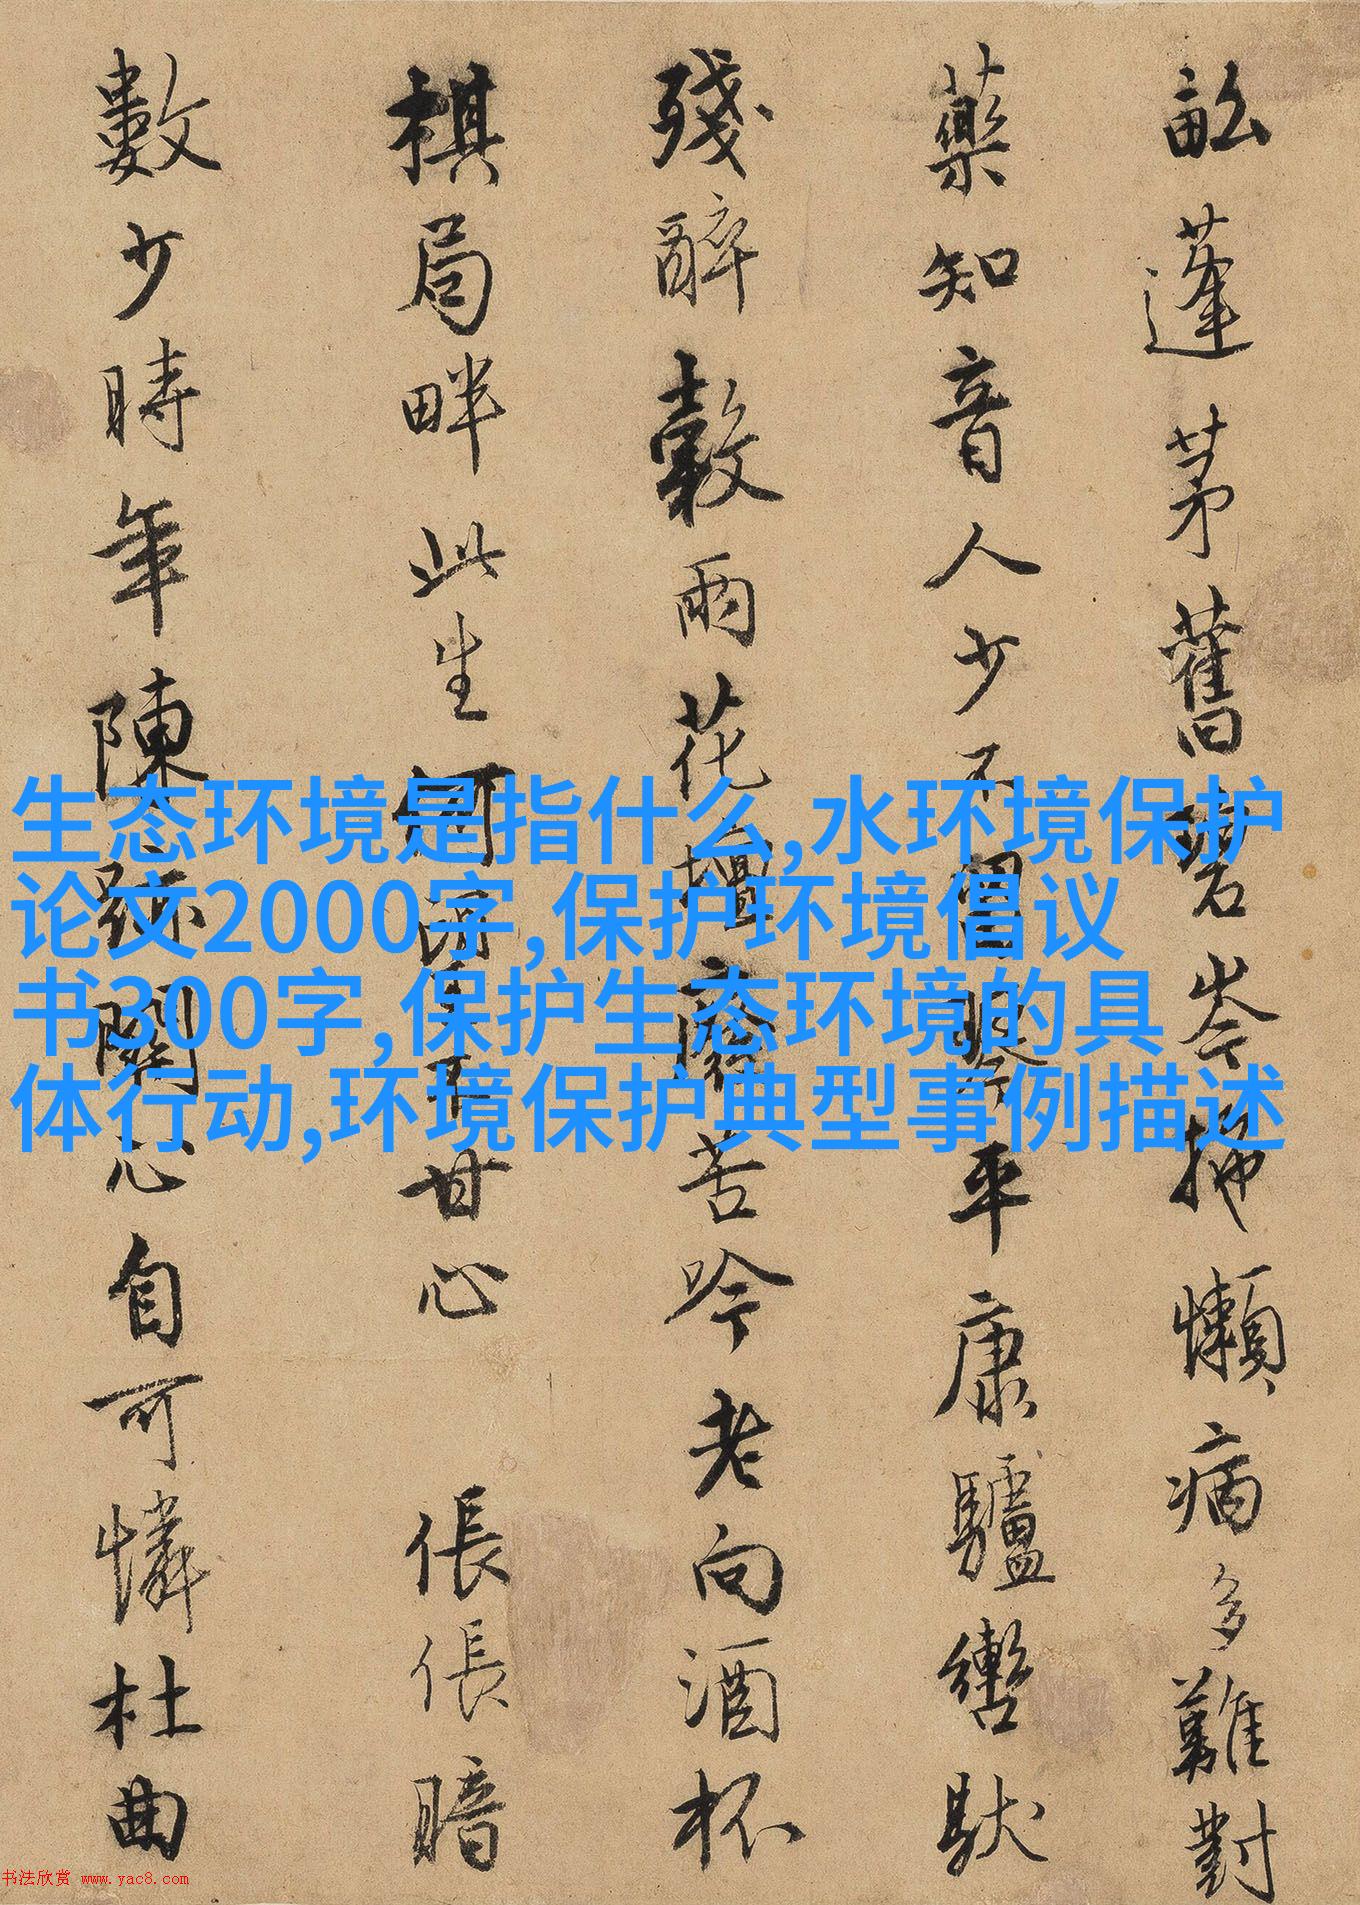 畝蓬茅舊碧岑拖懶病多難對
藥知音人少不平康驢轡馱
殘醉榖雨花壇廢苦吟老向酒杯
棋局畔此生何甘心 倀倀暗
數少時年陳跡關心自可憐杜曲
生态环境是指什么,水环境保护
论文2000字,保护环境倡议
书300字,保护生态环境的具
体行动,环境保护典型事例描述
书法欣赏 www.yac8.com